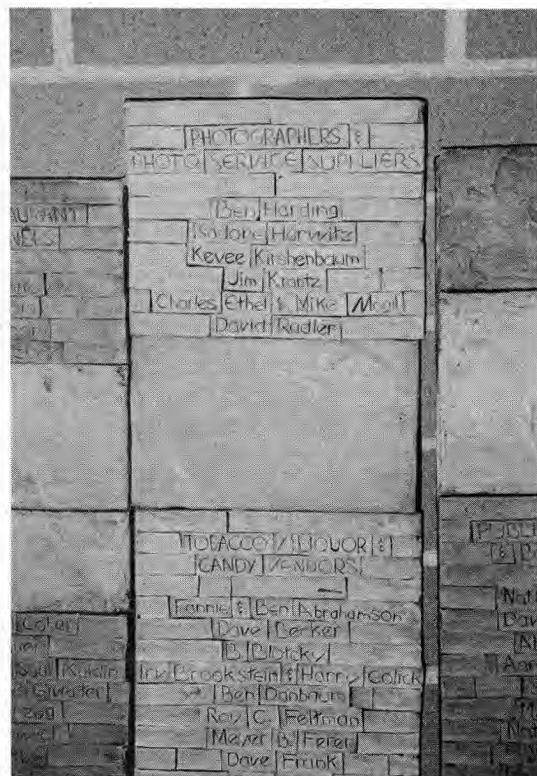 PHOTOGRAPHERS &
PHOTO SERVICE SUPPLIERS
Ben Harding
Isadore Hurwitz
Kevee Kirshenbaum
Jim Krantz
Charles Ethel & Mike Mogil
David Radler
TOBACCO / LIQUOR &
CANDY VENDORS
Fannie & Ben Abrahamson
Dave Becker
B. Blotcky
Irv Brookstein & Harry Colick
Ben Danbaum
Roy C. Feltman
Meyer B. Ferer
Dave Frank
AURANT
Kuklin
PUBLI
&